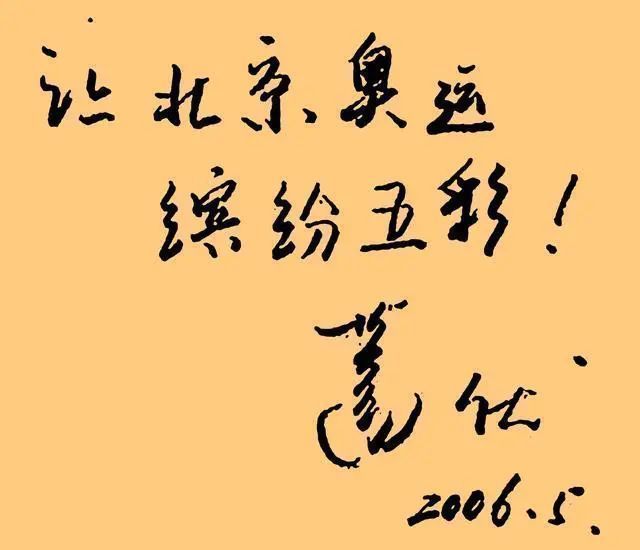 让北京奥运
缤纷五彩！
2006.5.